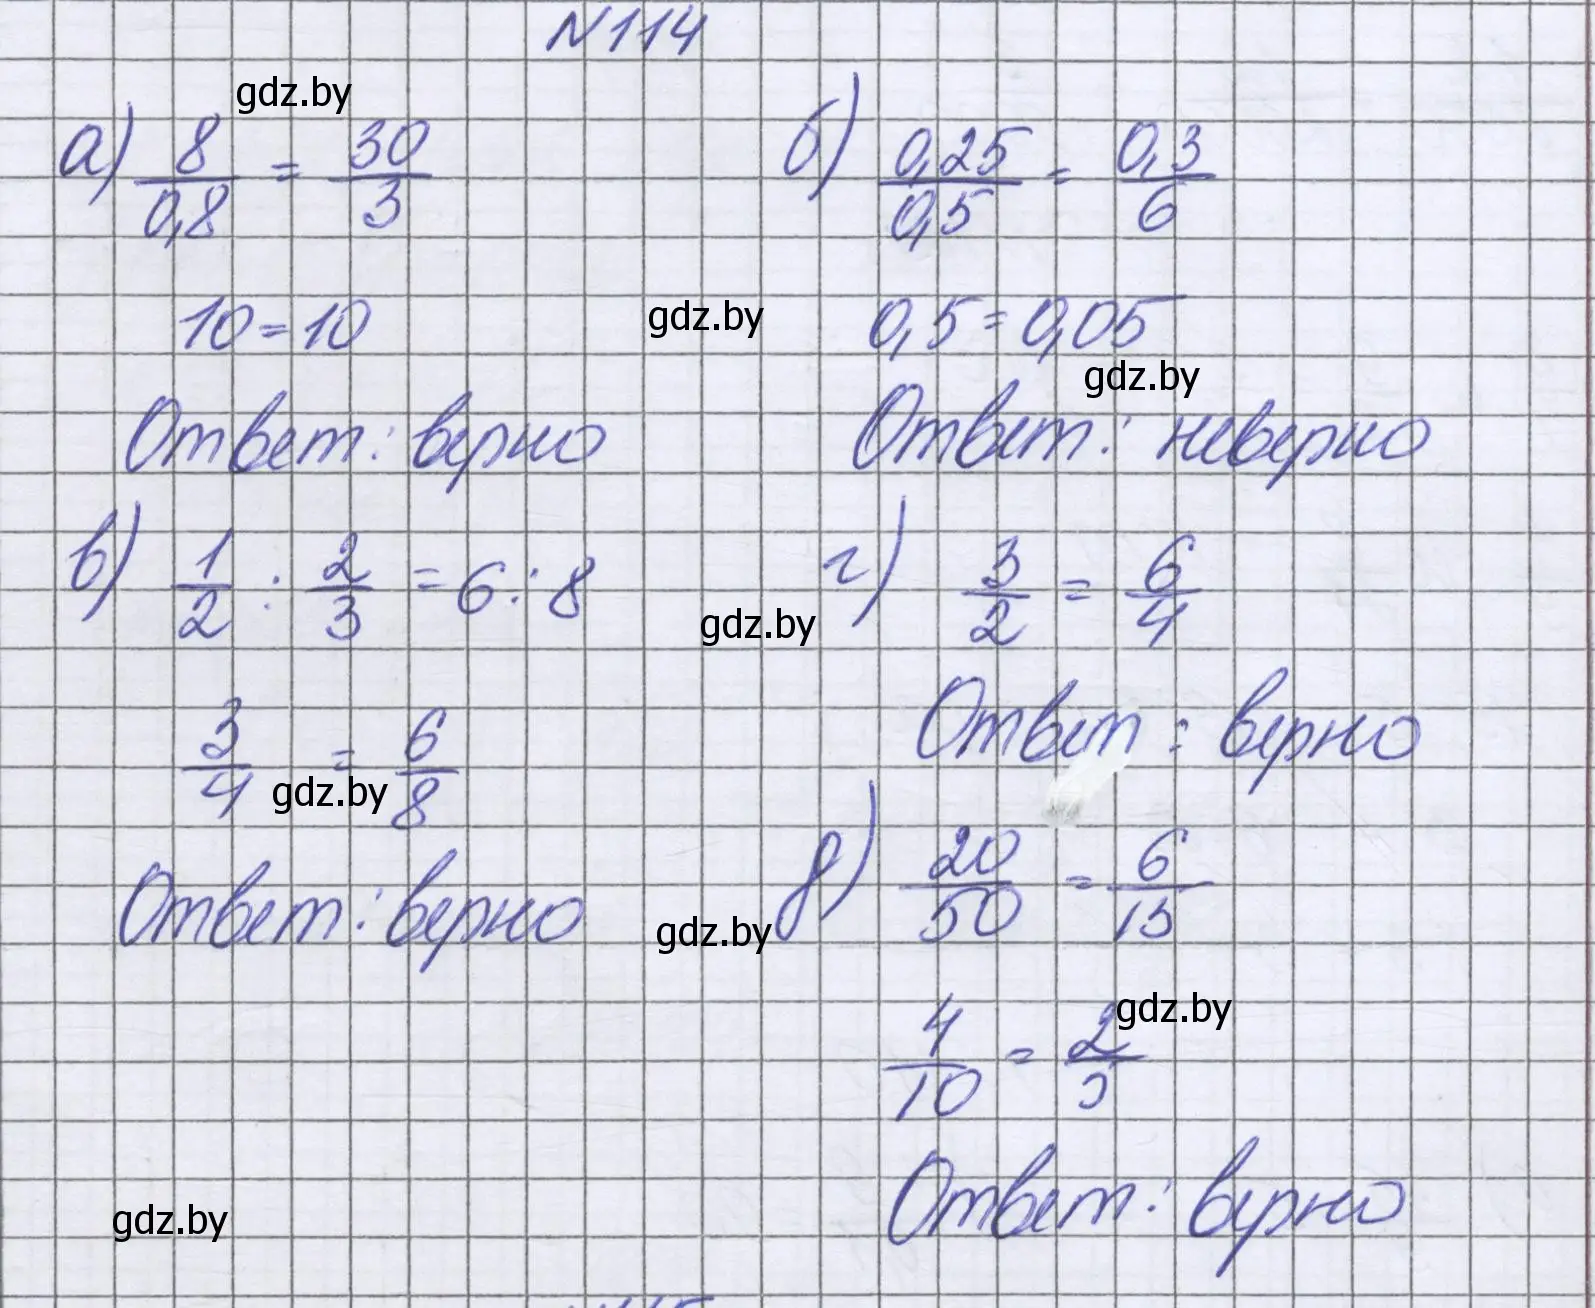 N114
gdz.by
а) 8/0,8 = 30/3
б) 0,25/0,5 = 0,3/6
10=10
gdz.by
0,5=0,05
gdz.by
Ответ: верно
Ответ: неверно
в) 1/2 : 2/3 = 6:8
г) 3/2 = 6/4
gdz.by
3/4 = 6/8
gdz.by
Ответ: верно
Ответ: верно
д) 20/50 = 6/15
gdz.by
4/10 = 2/5
gdz.by
Ответ: верно
gdz.by